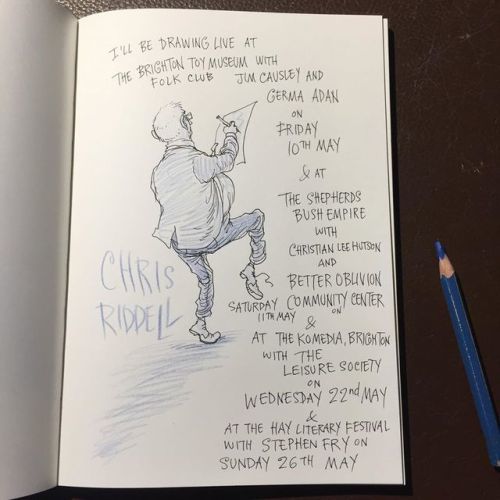 I'LL BE DRAWING LIVE AT
THE BRIGHTON TOY MUSEUM WITH
FOLK CLUB JIM CAUSLEY AND
GERMA ADAN
ON
FRIDAY
10TH MAY
& AT
THE SHEPHERDS
BUSH EMPIRE
WITH
CHRISTIAN LEE HUTSON
AND
BETTER OBLIVION
COMMUNITY CENTER
ON
SATURDAY
11TH MAY
&
AT THE KOMEDIA, BRIGHTON
WITH THE
LEISURE SOCIETY
ON
WEDNESDAY 22nd MAY
&
AT THE HAY LITERARY FESTIVAL
WITH STEPHEN FRY ON
SUNDAY 26TH MAY
CHRIS
RIDDELL